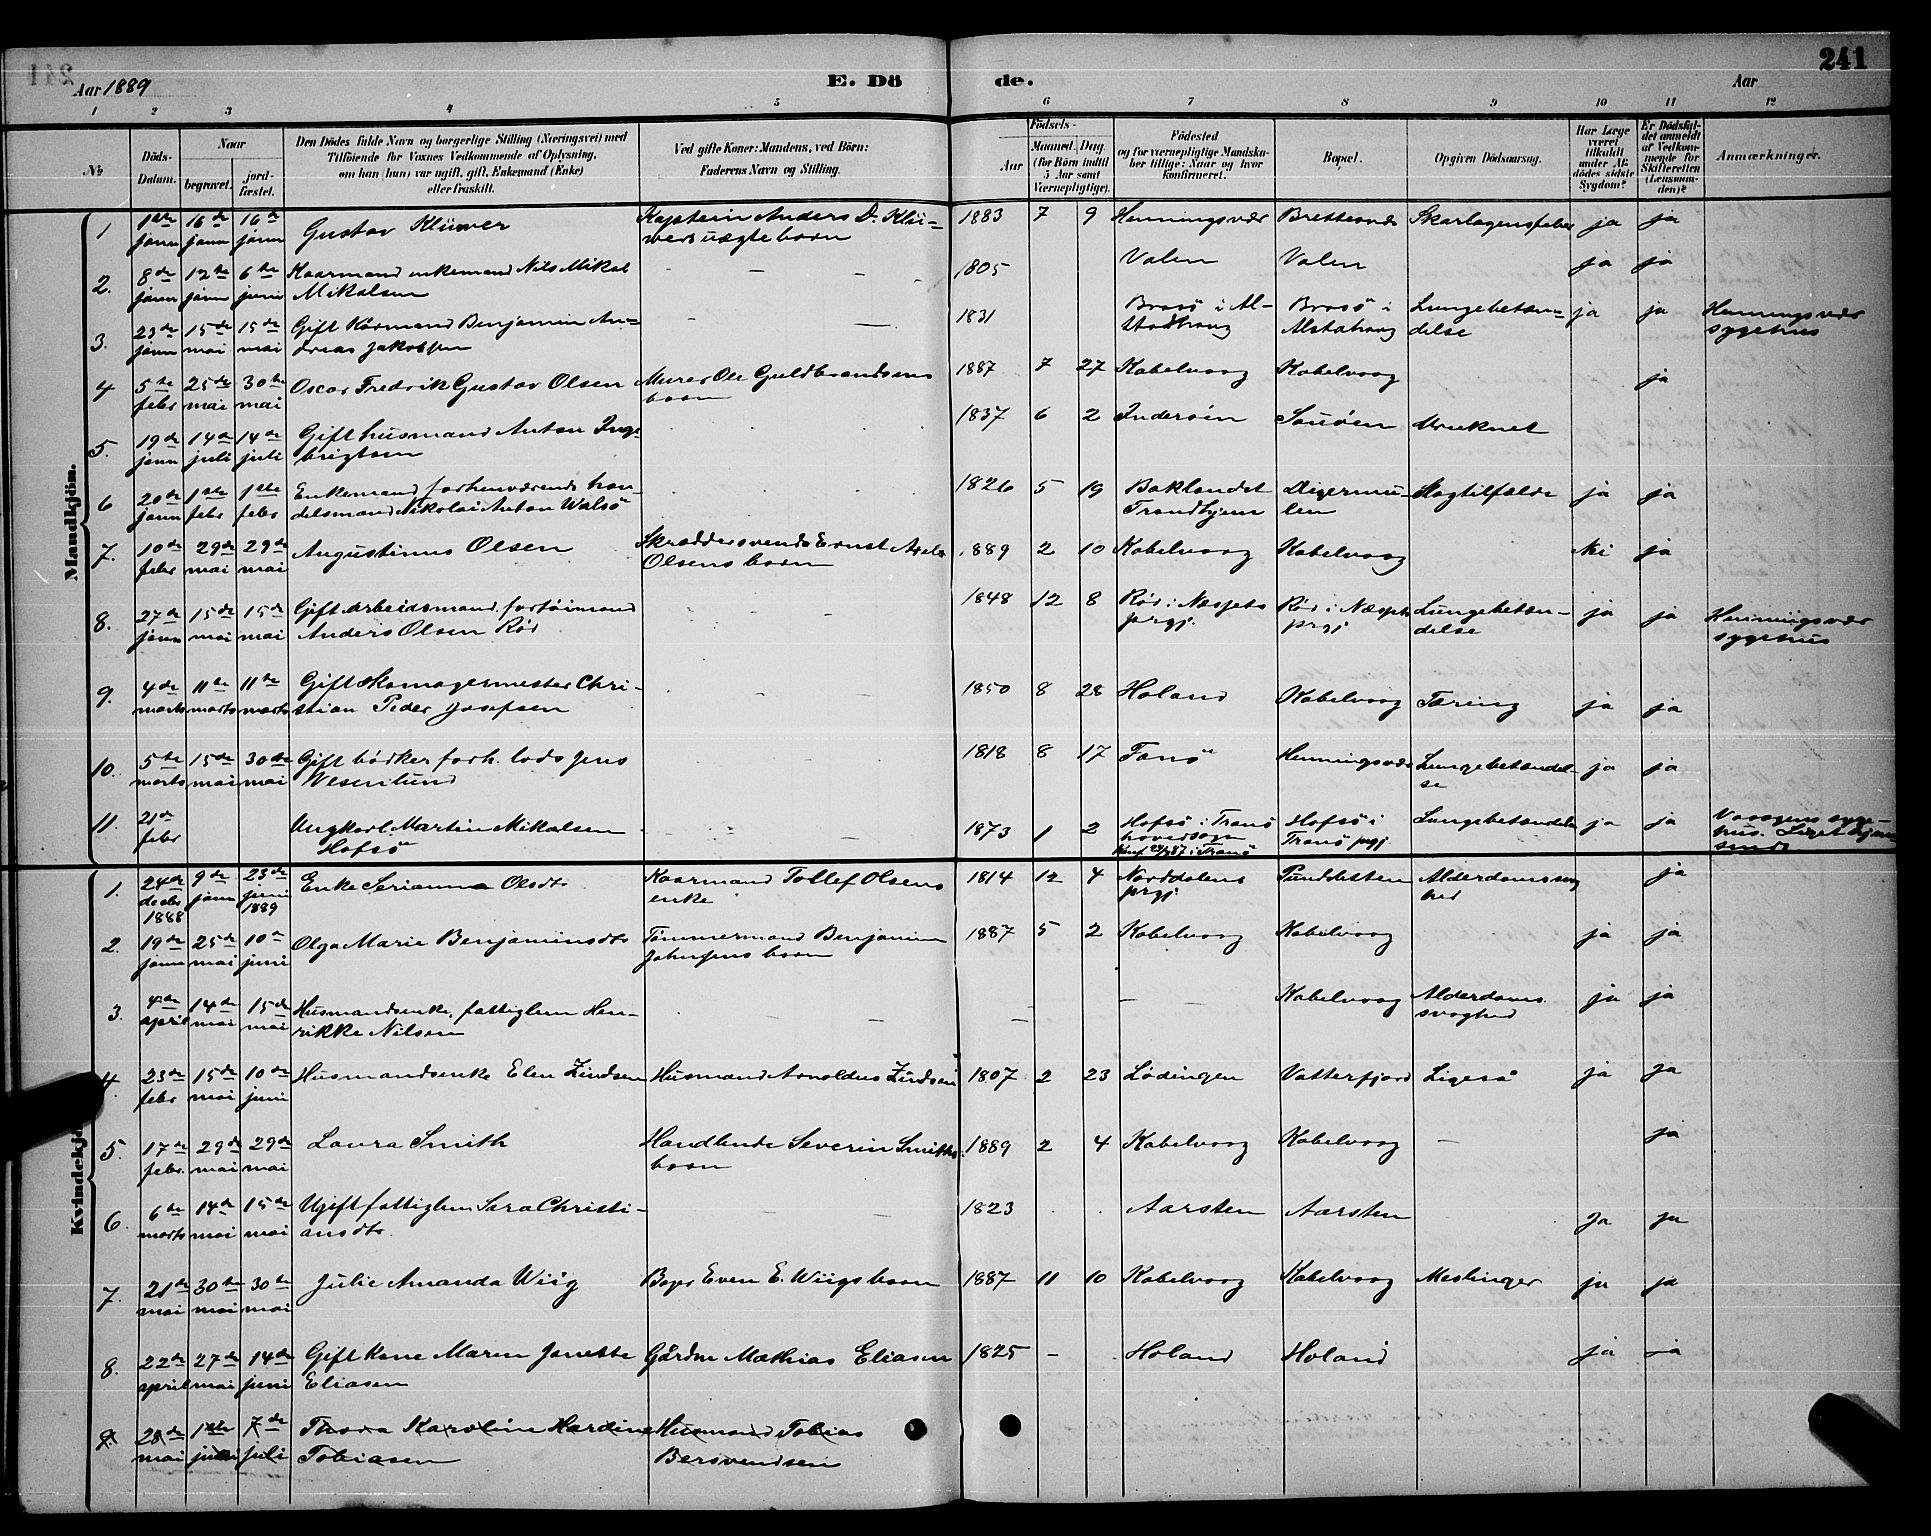 241
Aar 1889
E. Dö de.
Aar
1 2 3 4 5 6 7 8 9 10 11 12
No
Döds-Datum.
Naar
begravet.
jord-fæstet.
Den Dödes fulde Navn og borgerlige Stilling (Næringsvei) med
Tilföiende for Voxnes Vedkommende af Oplysning,
om han (hun) var ugift, gift, Enkemand (Enke)
eller fraskilt.
Ved gifte Koner: Mandens, ved Börn:
Faderens Navn og Stilling.
Födsels-
Aar
Maaned. Dag
(for Börn indtil
5 Aar samt
Værnepligtige).
Födested
og for værnepligtige Mandska-
ber tillige: Naar og hvor
konfirmeret.
Bopæl.
Opgiven Dödsaarsag.
Har Læge
været
tilkaldt
under Af-
dödes sidste
Sygdom?
Er Dödsfal-
det anmeldt
af Vedkom-
mende for
Skifteretten
(Lensman-
den)?
Anmærkninger.
Mandkjön.
1 1ste janu 16de janu 16de janu Gustav Klüwer Kaptein Anders D. Klü-
wers uægte barn 1883 7 9 Henningsvær Brettesnes Skarlagensfeber ja ja
2. 8de janu 12te janu 6te juni Kaarmand enkemand Nils Mikal
Mikalsen — — 1805 Valen Valen ja ja
3. 23de janu 15de mai 15de mai Gift Kårmand Benjamin An-
dreas Jakobsen — — 1831 Brasö i Al-
stadhaug Brasö i
Alstahaug Lungebetæn-
delse ja ja Henningsvær
sygehus
4 5te febr 25de mai 30te mai Oscar Fredrik Gustav Olsen Murer Ole Guldbrandsens
barn 1887 7 27 Kabelvaag Kabelvaag ja
5. 19de janu 14de juli 14de juli Gift husmand Anton Inge-
brigtsen 1837 6 2 Inderöen Sauöen Druknet
6 20de janu 1ste febr 1ste febr Enkemand forhenværende han-
delsmand Nikolai Anton Walsö 1826 5 19 Baklandet
Trondhjem Digermu-
len Slagtilfælde ja ja
7. 10de febr 29de mai 29de mai Augustinus Olsen Skræddersvend Ernst Axel
Olsens barn 1889 2 10 Kabelvaag Kabelvaag Nei ja
8. 27de janu 15de mai 15de mai Gift arbeidsmand, forföimand
Anders Olsen Röd 1848 12 8 Röd i Næssets
prgj. Röd i Næssets
prgj Lungebetæn-
delse ja ja Henningsvær
sygehus
9. 4de marts 11te marts 11te marts Gift skomagermester Chri-
stian Peder Josefsen 1850 8 28 Holand Kabelvaag Tæring ja ja
10. 5te marts 15de mai 30te mai Gift bödker forh. lods Jens
Wesenlund 1818 8 17 Fanö Henningsvær Lungebetændel-
se ja ja
11. 21de febr Ungkarl Martin Mikalsen
Hofsö 1873 1 2 Hofsö i Tranö
hovedsogn
Hofsö i
Tranö prgj Lungebetændelse ja ja
Kvindekjön.
1. 24de decbr 1888 9de janu 23de juni 1889 Enke Serianna Olsdtr Kaarmand Tollef Olsens
enke 1814 12 4 Norddalens
prgj Pundsletten Alderdomssvag
hed ja
2. 19de janu 25de mai 10de juni Olga Marie Benjaminsdtr Tömmermand Benjamin
Johnsens barn 1887 5 2 Kabelvaag Kabelvaag ja ja
3. 4de april 14de mai 15de mai Husmandsenke, fattiglem Hen-
rikke Nilsen — — — — — Kabelvaag Alderdoms
svaghed ja ja
4. 23de febr 15de mai 10de juni Husmandsenke Elen Zindsen Husmand Arnoldus Zindsen 1807 2 23 Lödingen Vatterfjord Ligeså ja ja
5. 17de febr 29de mai 29de mai Laura Smith Handlende Severin Smiths
barn 1889 2 4 Kabelvaag Kabelvaag — ja
6. 6te marts 14de mai 15de mai Ugift fattiglem Sara Christi-
ansdtr. — — 1823 Aarsten Aarsten ja ja
7. 21de mai 30te mai 30te mai Julie Amanda Wiig Bager Even E. Wiigs barn 1887 11 10 Kabelvaag Kabelvaag Meslinger ja ja
8. 22de april 27de mai 14de juni Gift Kone Maren Janette
Eliasen Gårdm Mathias Eliasen 1825 — Holand Holand ja ja
9. 28de mai 1ste juni 7de juli Thora Karoline Hardine
Tobiasen Husmand Tobias
Bersvendsen